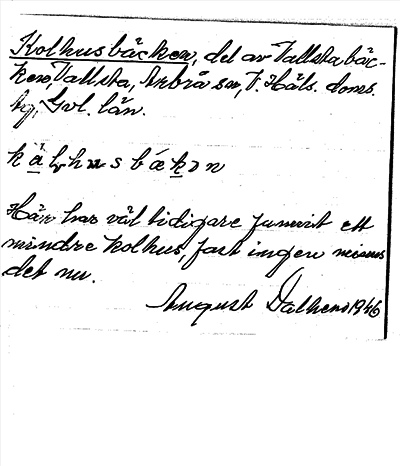 Kolhusbäcken, del av Vallstabäc-
ken, Vallsta, Arbrå sn, V. Häls. doms.
hg, Gvl. län.
kålhusbäkən
Här har väl tidigare funnit ett
mindre kolhus, fast ingen minns
det nu.
August Dalhend 1946